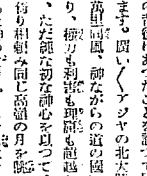 ます。闊い〳〵アジヤの北大
萬里同風、神ながらの道の
り、權力も利害も理窟も超越
、ただ純な初な神心を以つて
倚り相頼み同じ高嶺の月を眺